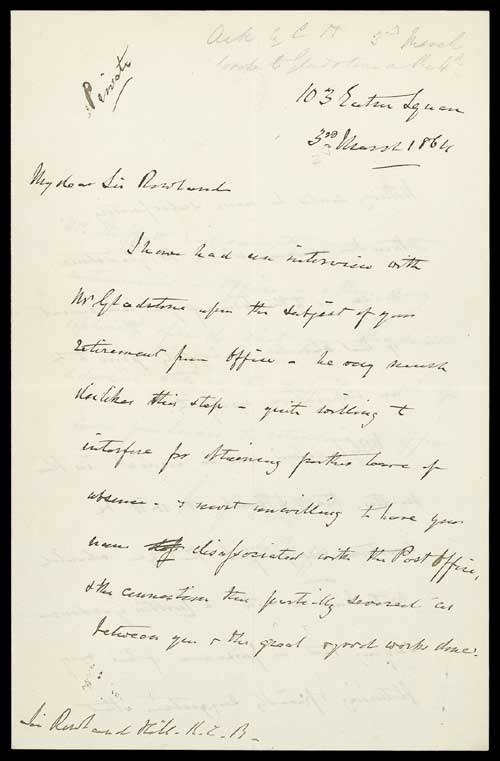 Ask 3rd March
to Gladstone
Private
103 Eaton Square
3rd March 1864
My dear Sir Rowland
I have had an interview with
Mr Gladstone upon the subject of your
retirement from Office - he very much
dislikes this step - quite willing to
interfere for obtaining further leave of
absence - & most unwilling to have your
name disassociated with the Post Office,
& the connection thus partially severed as
between you & the great & good works done.
Sir Rowland Hill. K. C. B.